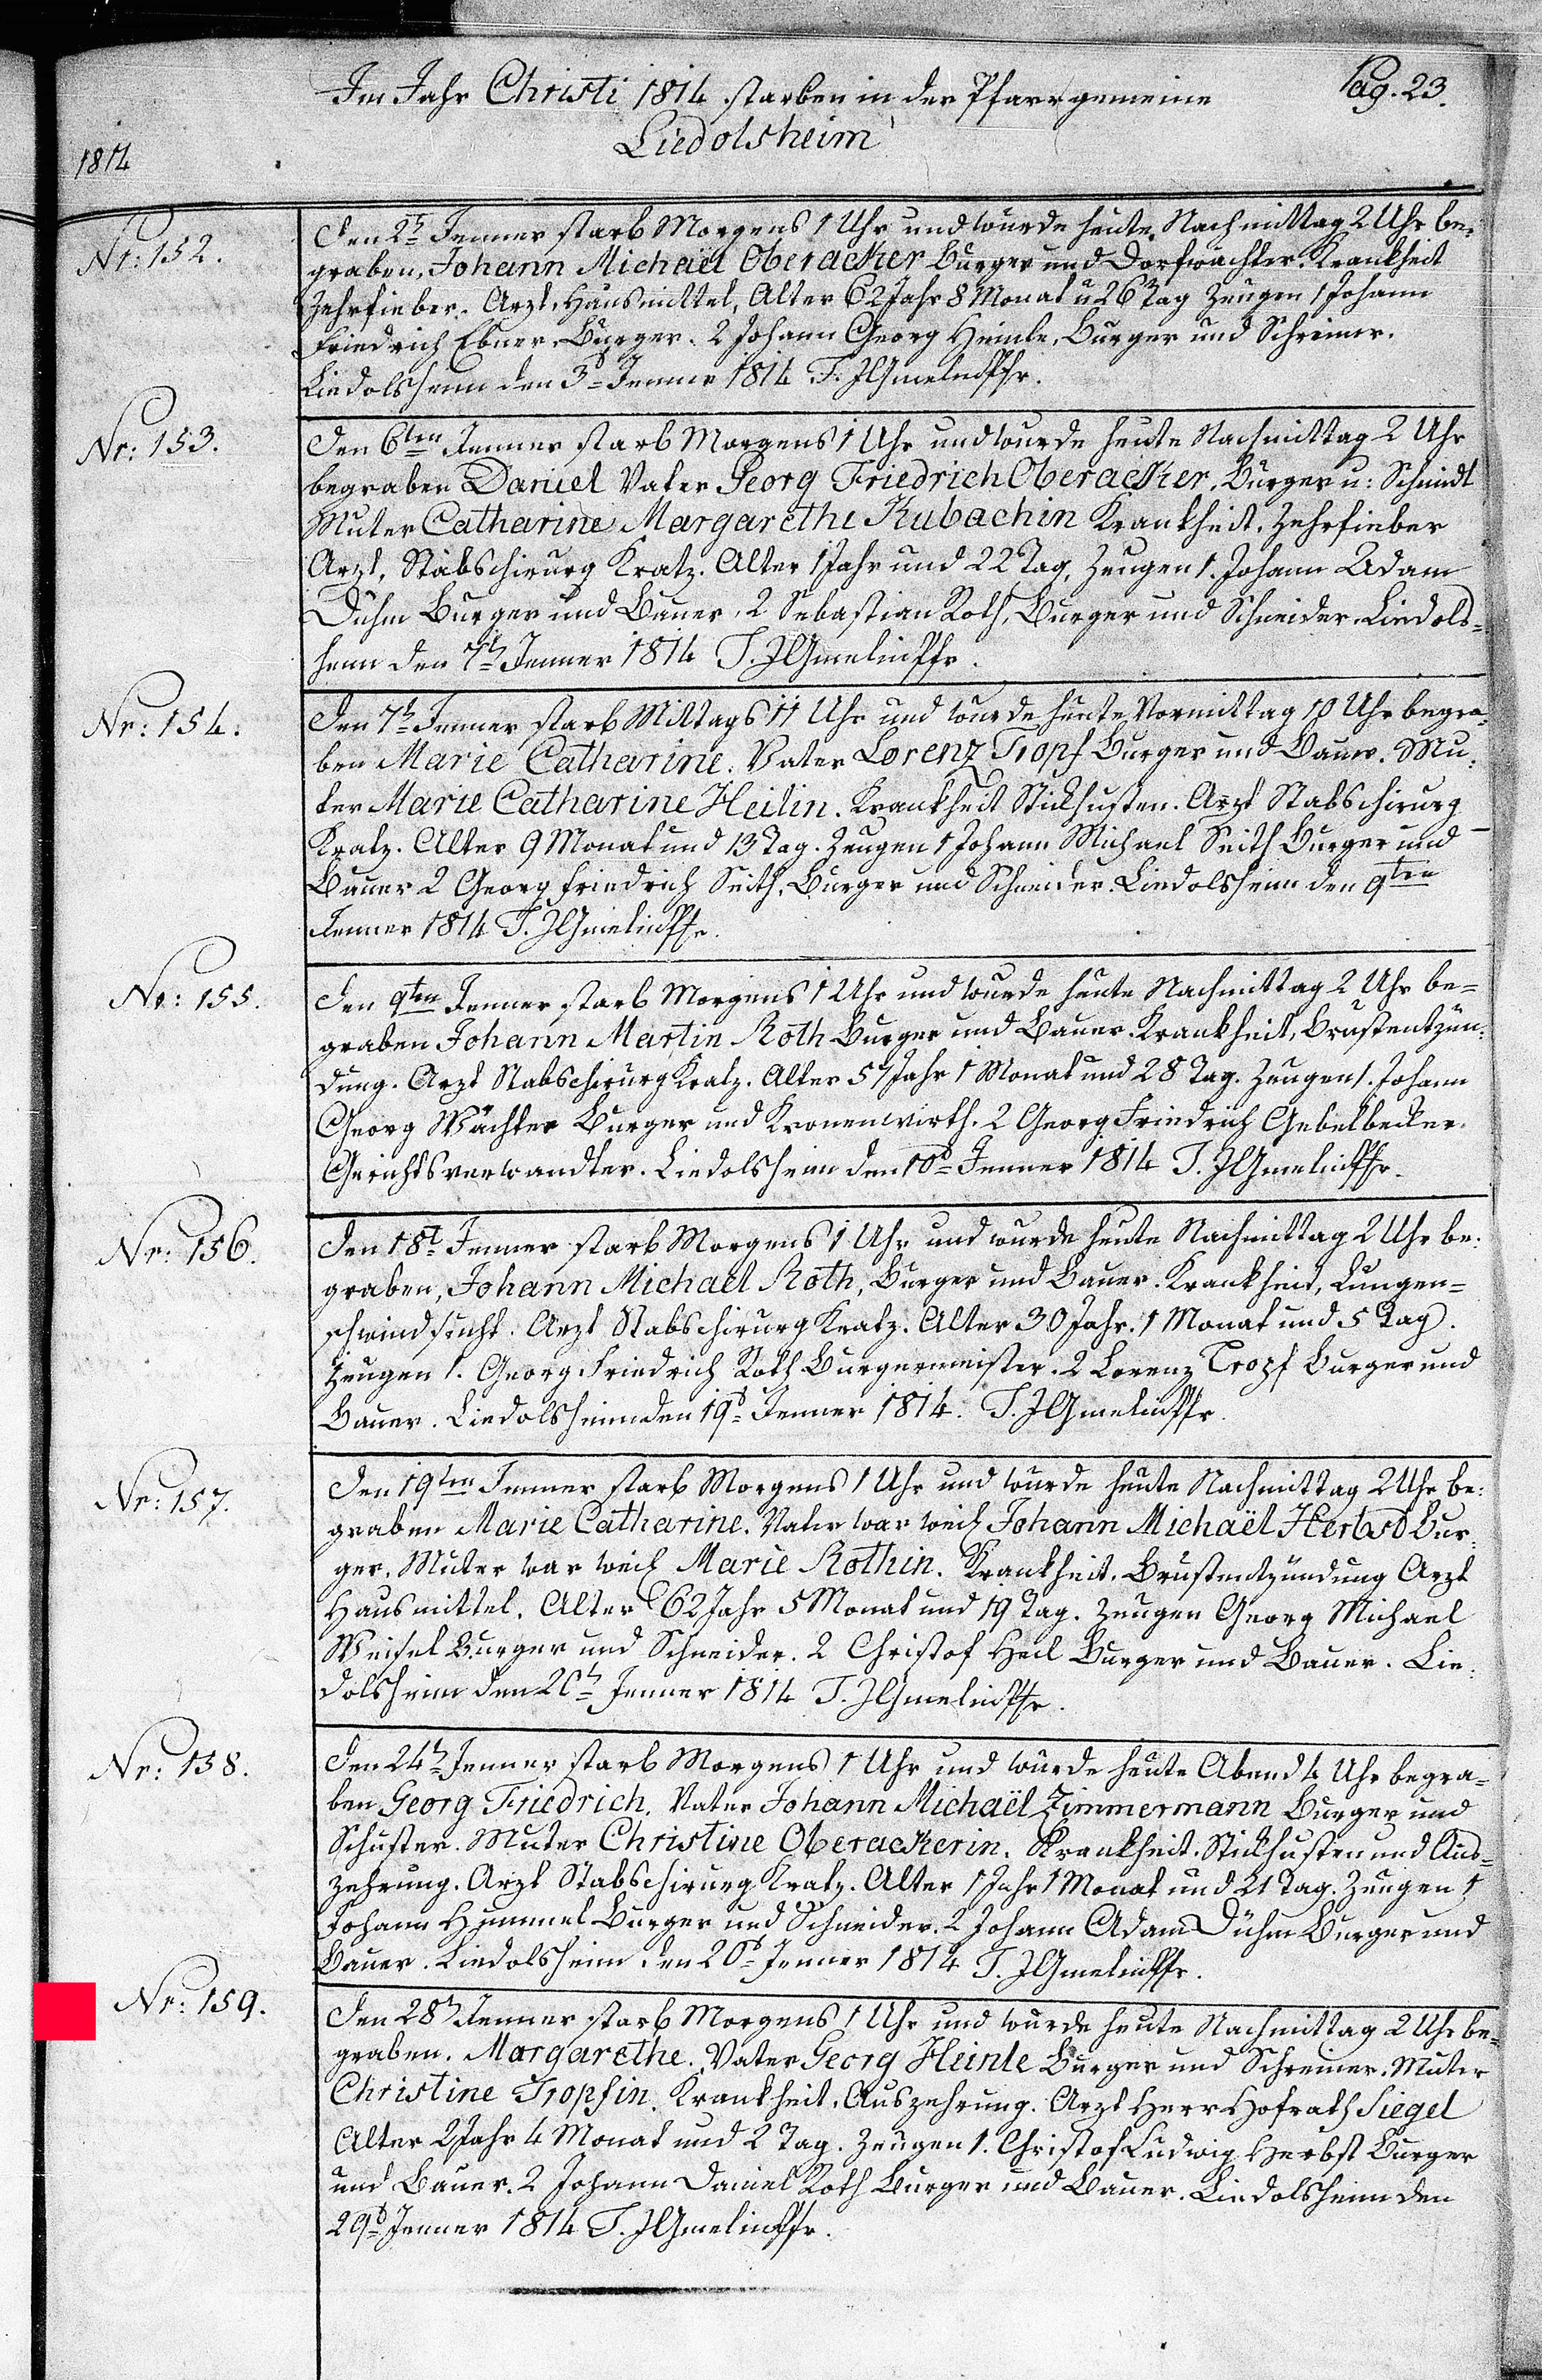 Im Jahr Christi 1814 starben in der Pfarrgemeine
Pag. 23.
Liedolsheim
1814
Nr: 152.
Den 2t Jenner starb Morgens 1 Uhr und wurde heute Nachmittag 2 Uhr be-
graben, Johann Michaël Oberacker Burger und Dorfwächter. Krankheit
Zehrfieber. Arzt, Hausmittel, Alter 62 Jahr 8 Monat u 26 Tag Zeugen 1 Johann
Friedrich Ebner, Burger. 2 Johann Georg Heinle, Burger und Schreiner.
Liedolsheim den 3t Jenner 1814 T. JGmelin Pfr.
Nr: 153.
Den 6ten Jenner starb Morgens 1 Uhr und wurde heute Nachmittag 2 Uhr
begraben Daniel Vater Georg Friedrich Oberacker, Burger u: Schmidt
Muter Catharine Margarethe Kubachin Krankheit, Zehrfieber
Arzt, Stabschirurg Kratz. Alter 1 Jahr und 22 Tag, Zeugen 1. Johann Adam
Dühm Burger und Bauer, 2 Sebastian Roth, Burger und Schneider. Liedols-
heim den 7t Jenner 1814 T. JGmelin Pfr.
Nr: 154.
Den 7t Jenner starb Mittags 11 Uhr und wurde heute Vormittag 10 Uhr begra-
ben Marie Catharine. Vater Lorenz Tropf Burger und Bauer. Mu-
ter Marie Catharine Heilin. Krankheit Stickhusten. Arzt Stabschirurg
Kratz. Alter 9 Monat und 13 Tag. Zeugen 1 Johann Michael Seith Burger und
Bauer 2 Georg Friedrich Seith, Burger und Schneider. Liedolsheim den 9ten
Jenner 1814 T. JGmelin Pfr.
Nr: 155.
Den 9ten Jenner starb Morgens 1 Uhr und wurde heute Nachmittag 2 Uhr be-
graben Johann Martin Roth Burger und Bauer. Krankheit, Brustentzün-
dung. Arzt Stabschirurg Kratz. Alter 57 Jahr 1 Monat und 28 Tag. Zeugen 1. Johann
Georg Wächter Burger und Kronenwirth. 2 Georg Friedrich Gebelbecker
Gerichtsverwandter. Liedolsheim den 10t Jenner 1814 T. JGmelin Pfr.
Nr: 156.
Den 18t Jenner starb Morgens 1 Uhr und wurde heute Nachmittag 2 Uhr be-
graben, Johann Michaël Roth, Burger und Bauer. Krankheit, Lungen-
schwindsucht. Arzt Stabschirurg Kratz. Alter 30 Jahr. 1 Monat und 5 Tag.
Zeugen 1. Georg Friedrich Roth Burgermeister. 2 Lorenz Tropf Burger und
Bauer. Liedolsheim den 19t Jenner 1814. T. JGmelin Pfr.
Nr: 157.
Den 19ten Jenner starb Morgens 1 Uhr und wurde heute Nachmittag 2 Uhr be-
graben Marie Catharine. Vater war weil Johann Michaël Herbst Bur-
ger. Muter war weil Marie Rothin. Krankheit. Brustentzündung Arzt
Hausmittel. Alter 62 Jahr 5 Monat und 19 Tag. Zeugen Georg Michael
Weisel Burger und Schneider. 2 Christof Heil Burger und Bauer. Lie-
dolsheim den 20t Jenner 1814 T. JGmelin Pfr.
Nr: 158.
Den 24t Jenner starb Morgens 1 Uhr und wurde heute Abend 4 Uhr begra-
ben Georg Friedrich. Vater Johann Michaël Zimmermann Burger und
Schuster. Muter Christine Oberackerin. Krankheit. Stickhusten und Aus-
zehrung. Arzt Stabschirurg Kratz. Alter 1 Jahr 1 Monat und 21 Tag. Zeugen 1
Johann Hummel Burger und Schneider. 2 Johann Adam Dühm Burger und
Bauer. Liedolsheim den 26t Jenner 1814 T. JGmelin Pfr.
Nr: 159.
Den 28t Jenner starb Morgens 1 Uhr und wurde heute Nachmittag 2 Uhr be-
graben. Margarethe. Vater Georg Heinle Burger und Schreiner. Muter
Christine Tropfin. Krankheit. Auszehrung. Arzt Herr Hofrath Siegel
Alter 2 Jahr 4 Monat und 2 Tag. Zeugen 1. Christof Ludwig Herbst Burger
und Bauer. 2 Johann Daniel Roth Burger und Bauer. Liedolsheim den
29t Jenner 1814 T. JGmelin Pfr.